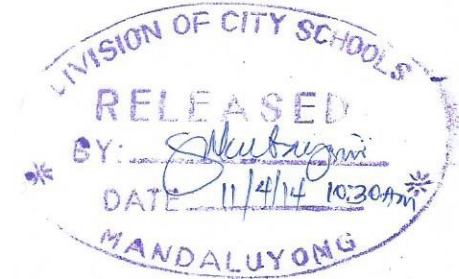 DIVISION OF CITY SCHOOLS
RELEASED
BY:
DATE 11/4/14 10:30AM
MANDALUYONG